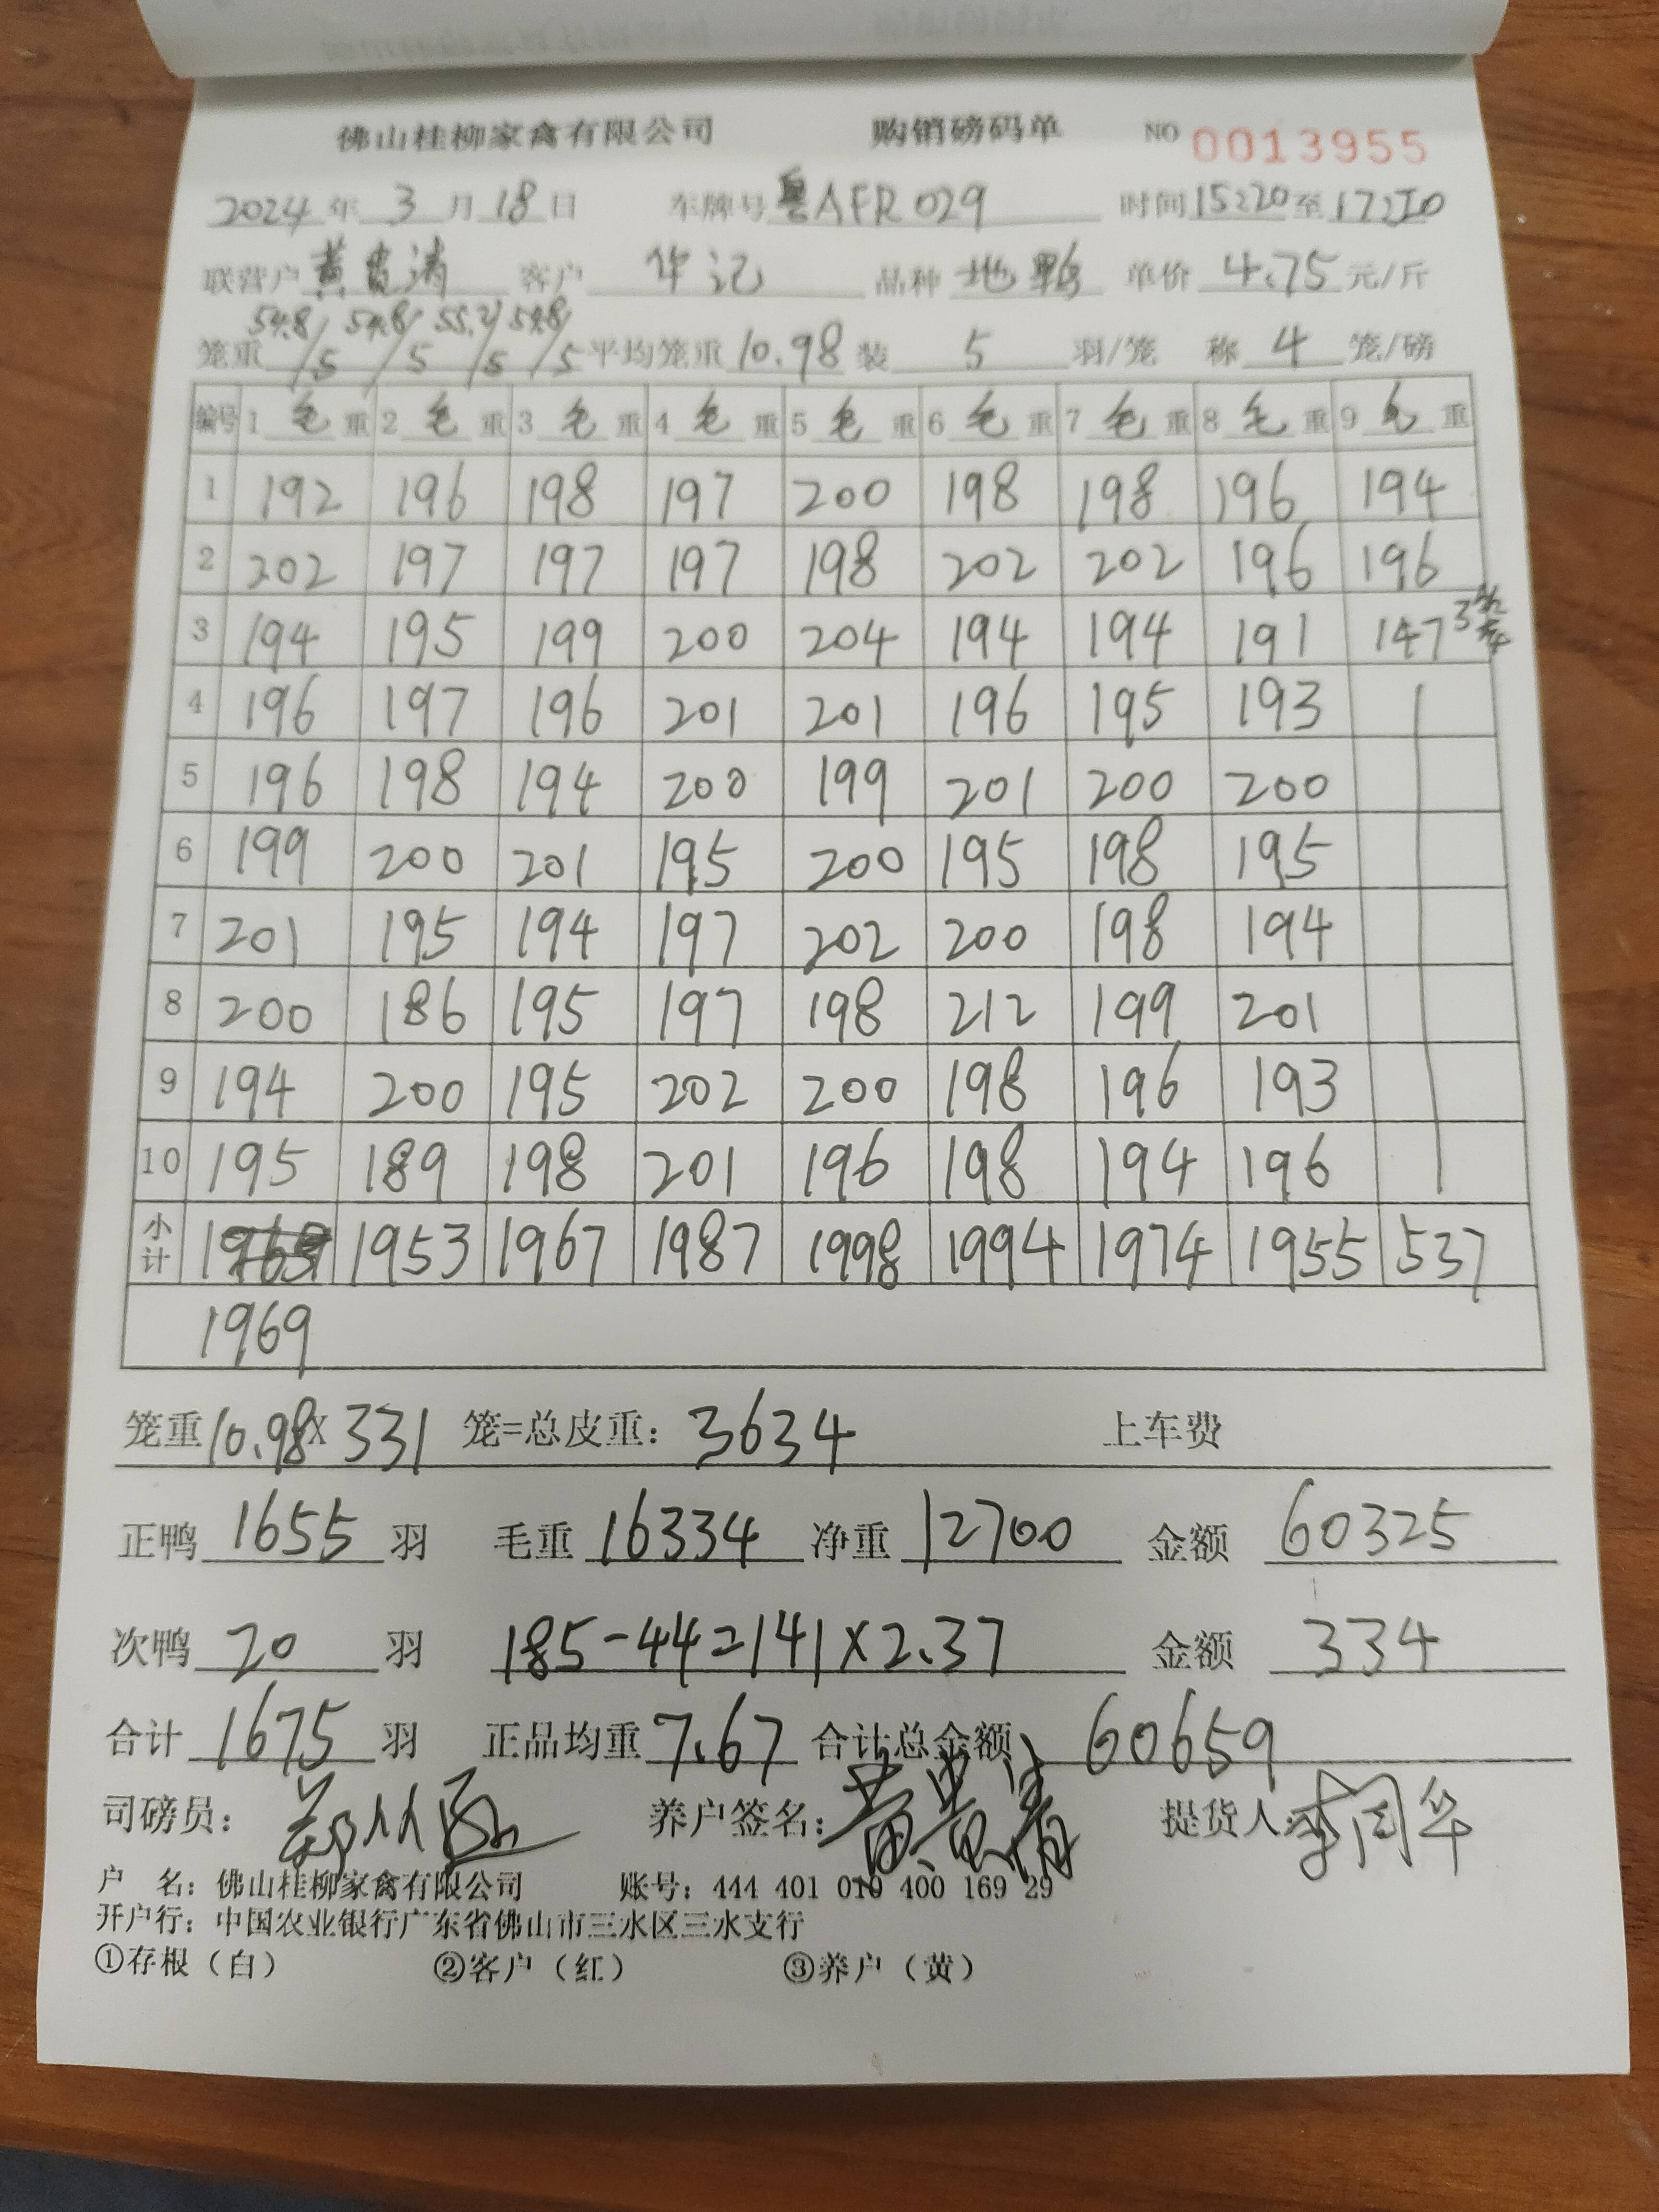 佛山桂柳家禽有限公司 购销磅码单 NO 0013955
2024年 3 月 18 日 车牌号 粤AFR029 时间 15:20 至 17:50
联营户 黄贵清 客户 华记 品种 地鸭 单价 4.75 元/斤
笼重 54.8/5 54.8/5 55.2/5 54.8/5 平均笼重 10.98 装 5 羽/笼 称 4 笼/磅
编号 1 毛 重 2 毛 重 3 毛 重 4 毛 重 5 毛 重 6 毛 重 7 毛 重 8 毛 重 9 毛 重
1 192 196 198 197 200 198 198 196 194
2 202 197 197 197 198 202 202 196 196
3 194 195 199 200 204 194 194 191 147 3笼
4 196 197 196 201 201 196 195 193
5 196 198 194 200 199 201 200 200
6 199 200 201 195 200 195 198 195
7 201 195 194 197 202 200 198 194
8 200 186 195 197 198 212 199 201
9 194 200 195 202 200 198 196 193
10 195 189 198 201 196 198 194 196
小计 1953 1967 1987 1998 1994 1974 1955 537
1969
笼重 10.98 x 331 笼=总皮重: 3634 上车费
正鸭 1655 羽 毛重 16334 净重 12700 金额 60325
次鸭 20 羽 185-44=141x2.37 金额 334
合计 1675 羽 正品均重 7.67 合计总金额 60659
司磅员: 养户签名: 黄贵清 提货人: 李周华
户 名: 佛山桂柳家禽有限公司 账号: 444 401 010 400 169 29
开户行: 中国农业银行广东省佛山市三水区三水支行
①存根(白) ②客户(红) ③养户(黄)